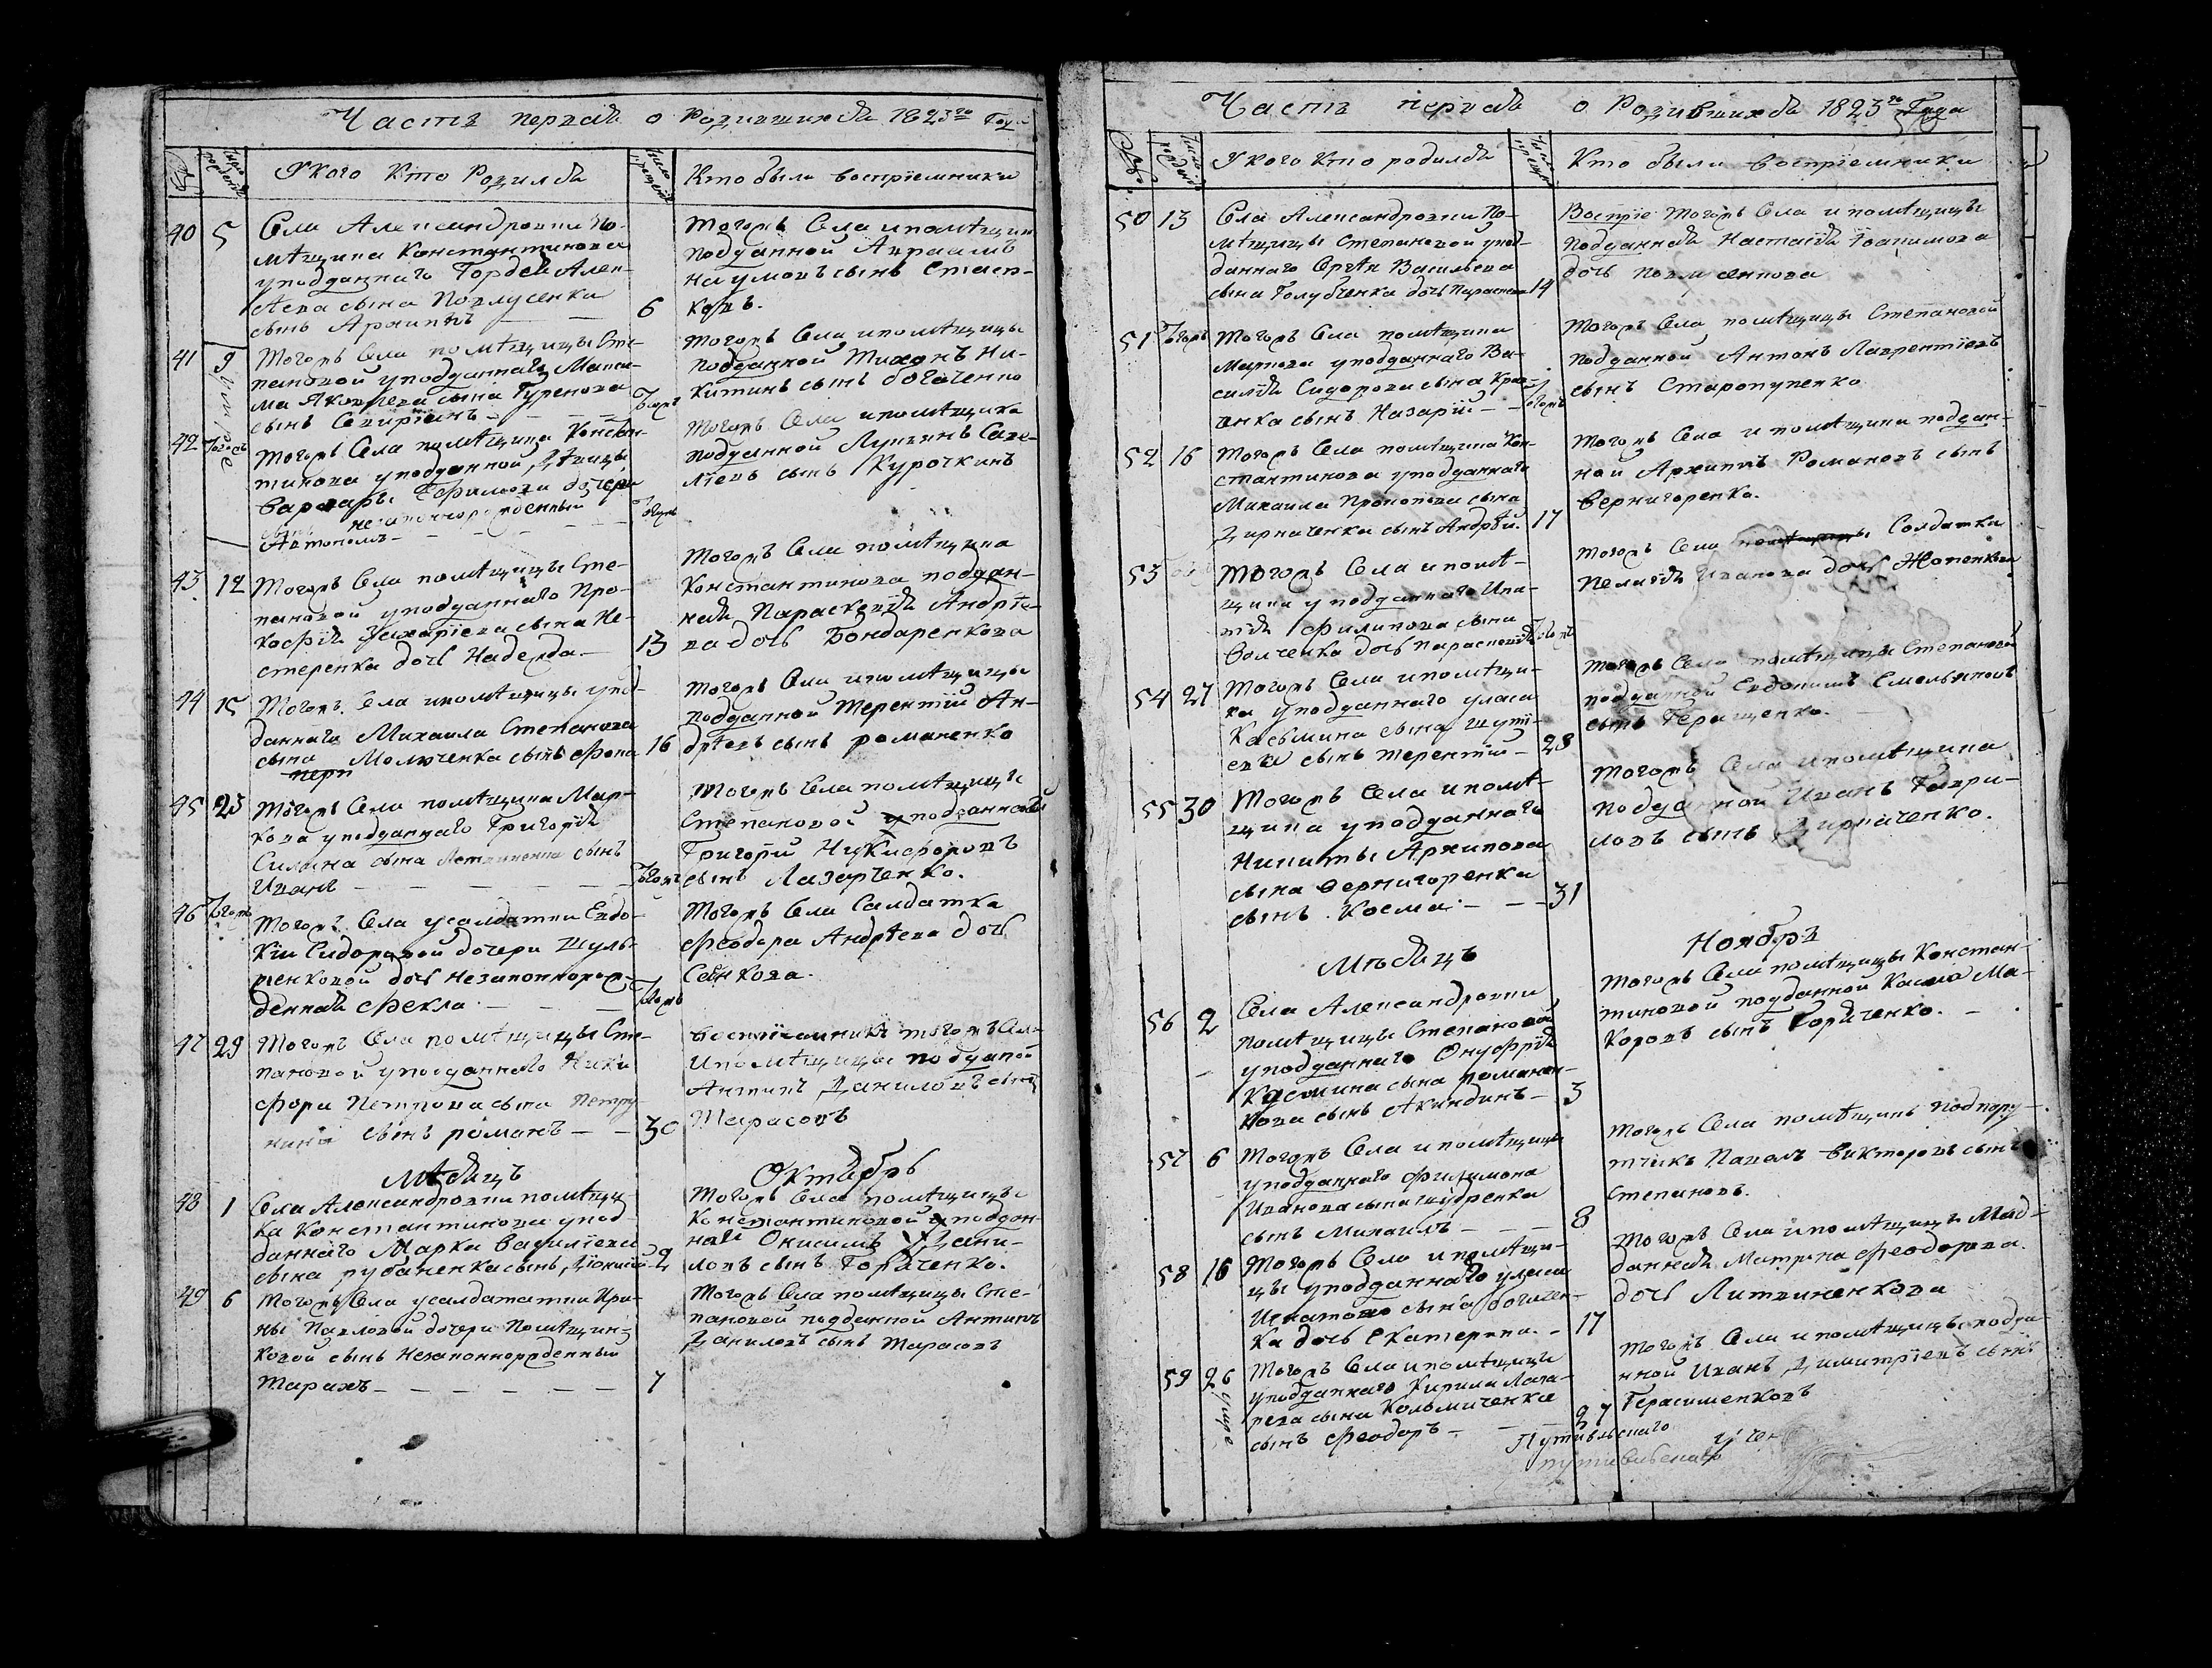 Часть первая о Родившихся 1823го Года
Числ рожден
У кого кто Родился
Число крещен
Кто были восприемники
40 5
Села Александровки по-
мѣщика Константинова
у подданнаго Гордѣя Алек-
сѣева сына Павлусенка
сынъ Архиппъ — —
6
Тогожъ Села и помѣщик
подданной Авраамъ
Наумовъ сынъ
ковъ.
41 9
Тогожъ Села помѣщицы Сте-
пановой у подданнаго Макси-
ма Яковлева сына Гуренова
сынъ Севиріянъ — — —
Тогожъ
Тогожъ Села и помѣщицы
подданной Тихонъ Ни-
китинъ сынъ Богаченко
42 Тогожъ
Тогожъ Села помѣщика Констан-
тинова у подданной дѣвицы
Варвары Ефимовой дочери
сынъ незаконнорожденный
Автономъ — — — —
Тогожъ
Тогожъ Села и помѣщика
подданной Лукьянъ Саве-
лїевъ сынъ Курочкинъ
43 12
Тогожъ Села помѣщицы Сте-
пановой у подданнаго Про-
кофія Захарїева сына Не-
стеренка дочь Надежда —
13
Тогожъ Села помѣщика
Константинова поддан-
ная Параскевїя Андрїе-
ва дочь Бондаренкова
44 15
Тогожъ Села и помѣщицы у под-
даннаго Михаила Степанова
сына Молюченка сынъ Фока
16
Тогожъ Села и помѣщицы
подданной Терентїй Ан-
дрѣевъ сынъ романенко
45 23
Тогожъ Села помѣщика Мар-
кова у подданнаго Григорїя
Силина сына Литвиненка сынъ
Иванъ — — — — — —
Тогожъ
Тогожъ Села помѣщицы
Степановой у подданной
Григорїй Никифоровъ
сынъ Лазарченко.
46 Тогожъ
Тогожъ Села у салдатки Евдо-
кїи Сидоровой дочери Шуль-
женковой дочь незаконнорож-
денная Фекла — — —
Тогожъ
Тогожъ Села Салдатка
Феодора Андрѣева дочь
Сенкова.
47 29
Тогожъ Села помѣщицы Сте-
пановой у подданнаго Ники
фора Петрова сына Петру-
нина сынъ романъ — —
30
восприемникъ тогожъ Села
и помѣщицы подданой
Антипъ Даниловъ сынъ
Тарасовъ
Мѣсяцъ Октябрь
48 1
Села Александровки помѣщи-
ка Константинова у под-
даннаго Марка Василїева
сына рубаненка сынъ Дїонисїй
2
Тогожъ Села помѣщицы
Константиновой у поддан-
ной Онисимъ Дани-
ловъ сынъ Горяченко.
49 6
Тогожъ Села у салдататки Ири-
ны Павловой дочери Помѣщик-
ковой сынъ Незаконнорожденный
Тарахъ — — — — — —
7
Тогожъ Села помѣщицы Сте-
пановой подданной Антипъ
Даниловъ сынъ Тарасовъ
Часть первая о Родившихся 1823го Года
Число рожден
У кого кто родился
Число крещен
Кто были восприемники
50 13
Села Александровки По-
мѣщицы Степановой у под-
даннаго Сергѣя Васильева
сына Голубченка дочь Параскева
14
Воспрїе тогожъ Села и помѣщицы
подданная Настасїя Іоакимова
дочь
51 Тогожъ
Тогожъ Села помѣщика
Маркова у подданнаго Ва-
силїя Сидорова сына Крав-
ченка сынъ Назарїй — —
Тогожъ
Тогожъ Села помѣщицы Степановой
подданной Антонъ Лаврентїевъ
сынъ Старопупенко
52 16
Тогожъ Села помѣщика Кон-
стантинова у подданнаго
Михаила Прокопова сына
Цирпаченка сынъ Андрѣй.
17
Тогожъ Села и помѣщика поддан-
ной Архипъ Романовъ сынъ
Вернигоренко.
53
Тогожъ Села и помѣ-
щика у подданнаго Ипа-
тїя Филипова сына
Волченка дочь Параскевїя
Тогожъ
Тогожъ Села помѣщицы Солдатка
Пелагїя Иванова дочь
54 27
Тогожъ Села и помѣщи-
ка у подданнаго Уласа
Касьмина сына
сынъ Терентїй —
28
Тогожъ Села помѣщицы Степановой
подданной Евдокимъ Емельяновъ
сынъ Геращенко.
55 30
Тогожъ Села и помѣ-
щика у подданнаго
Никиты Архипова
сына Вернигоренка
сынъ Косма — — —
31
Тогожъ Села и помѣщика
подданной Иванъ Гаври-
ловъ сынъ Цирпаченко.
Мѣсяцъ Ноябрь
56 2
Села Александровки
помѣщицы Степановой
у подданнаго Онуфрїя
Касмина сына романен-
кова сынъ Акиндинъ —
3
Тогожъ Села помѣщицы Констан-
тиновой подданной Касма Ма-
каровъ сынъ Горяченко. —
57 6
Тогожъ Села и помѣщицы
у подданнаго Филимона
Иванова сына
сынъ Михаилъ — — —
8
Тогожъ Села помѣщикъ подпору-
тчикъ Павелъ Викторовъ сынъ
Степановъ.
58 16
Тогожъ Села и помѣщи-
цы у подданнаго Уласа
Игнатова сына Богачен-
ка дочь Екатерина. —
17
Тогожъ Села и помѣщицы Мад-
данная Матрина Феодорова
дочь Литвиненкова
59 26
Тогожъ Села и помѣщицы
у подданнаго Кирила Лаза-
рева сына Кольмиченка
сынъ Феодоръ —
27
Тогожъ Села и помѣщицы подда-
нной Иванъ Димитрїевъ сынъ
Герасименковъ
Путивльскаго
путивльскаго